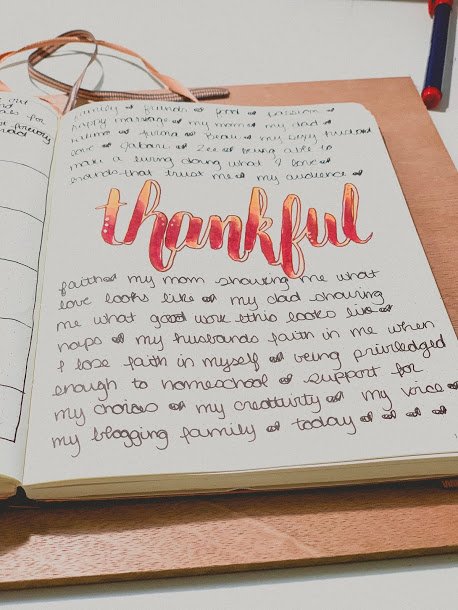 family friends food passion
happy my mom my dad
my sexy husband
love Jabari Zee being able to
make a living doing what I love
brands that trust me my audience
thankful
faith my mom showing me what
love looks like my dad showing
me what good work looks like
naps my husbands faith in me when
I lose faith in myself being priviledged
enough to homeschool support for
my choices my creativity my voice
my blogging family today